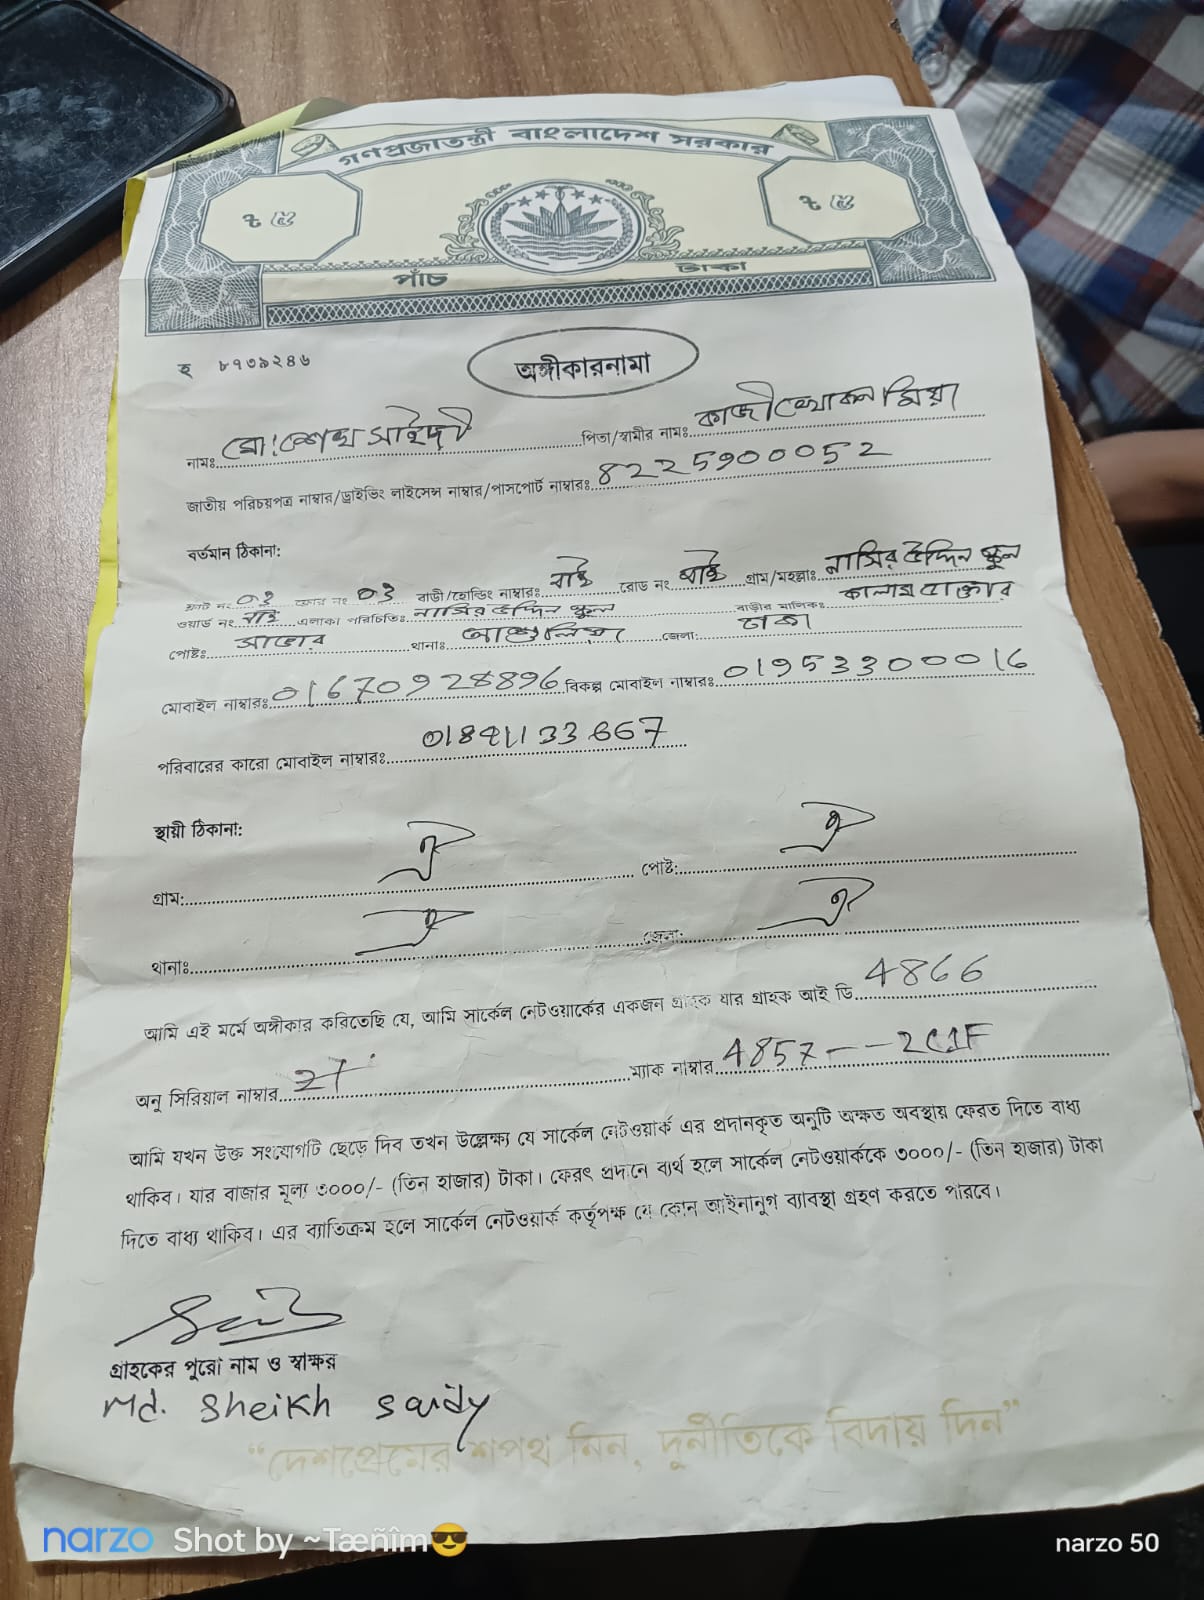 গণপ্রজাতন্ত্রী বাংলাদেশ সরকার
৳ ৫ ৳ ৫
পাঁচ টাকা
হ ৮৭৩৯২৪৬
অঙ্গীকারনামা
নামঃ মো: শেখ সাইদী পিতা/স্বামীর নামঃ কাজী খোকন মিয়া
জাতীয় পরিচয়পত্র নাম্বার/ড্রাইভিং লাইসেন্স নাম্বার/পাসপোর্ট নাম্বারঃ 8225900052
বর্তমান ঠিকানা:
ফ্লাট নং 03 ফ্লোর নং 03 বাড়ী/হোল্ডিং নাম্বারঃ নাই রোড নং নাই গ্রাম/মহল্লাঃ নাসির উদ্দিন স্কুল
ওয়ার্ড নং নাই এলাকা পরিচিতিঃ নাসির উদ্দিন স্কুল বাড়ীর মালিকঃ কালাম ডাক্তার
পোষ্টঃ সাভার থানাঃ আশুলিয়া জেলা: ঢাকা
মোবাইল নাম্বারঃ 01670928896 বিকল্প মোবাইল নাম্বারঃ 01953300016
পরিবারের কারো মোবাইল নাম্বারঃ 01841133667
স্থায়ী ঠিকানা:
গ্রাম: ঐ পোষ্ট: ঐ
থানাঃ ঐ জেলা: ঐ
আমি এই মর্মে অঙ্গীকার করিতেছি যে, আমি সার্কেল নেটওয়ার্কের একজন গ্রাহক যার গ্রাহক আই ডি 4866
অনু সিরিয়াল নাম্বার ম্যাক নাম্বার 4857--2C1F
আমি যখন উক্ত সংযোগটি ছেড়ে দিব তখন উল্লেক্ষ্য যে সার্কেল নেটওয়ার্ক এর প্রদানকৃত অনুটি অক্ষত অবস্থায় ফেরত দিতে বাধ্য
থাকিব। যার বাজার মূল্য ৩০০০/- (তিন হাজার) টাকা। ফেরৎ প্রদানে ব্যর্থ হলে সার্কেল নেটওয়ার্ককে ৩০০০/- (তিন হাজার) টাকা
দিতে বাধ্য থাকিব। এর ব্যাতিক্রম হলে সার্কেল নেটওয়ার্ক কর্তৃপক্ষ যে কোন আইনানুগ ব্যাবস্থা গ্রহণ করতে পারবে।
গ্রাহকের পুরো নাম ও স্বাক্ষর
Md. Sheikh saidy
“দেশপ্রেমের শপথ নিন, দুর্নীতিকে বিদায় দিন”
narzo Shot by ~Tæñîm😎 narzo 50